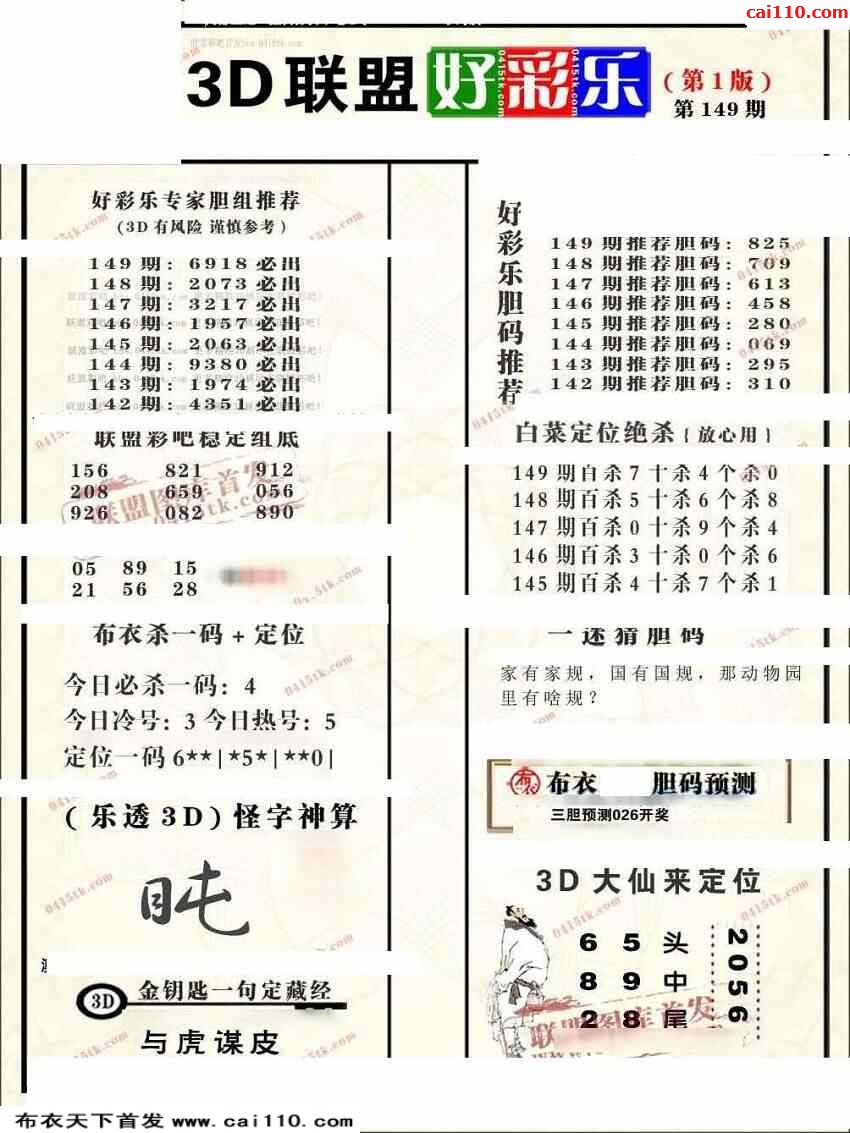 cai110.com
3D联盟好彩乐(第1版)
第149期
好彩乐专家胆组推荐
(3D有风险 谨慎参考)
149期: 6918必出
148期: 2073必出
147期: 3217必出
146期: 1957必出
145期: 2063必出
144期: 9380必出
143期: 1974必出
142期: 4351必出
联盟彩吧稳定组底
156 821 912
208 659 056
926 082 890
05 89 15
21 56 28
布衣杀一码+定位
今日必杀一码: 4
今日冷号: 3 今日热号: 5
定位一码6**|*5*|**0|
(乐透3D)怪字神算
3D 金钥匙一句定藏经
与虎谋皮
好彩乐胆码推荐
149期推荐胆码: 825
148期推荐胆码: 709
147期推荐胆码: 613
146期推荐胆码: 458
145期推荐胆码: 280
144期推荐胆码: 069
143期推荐胆码: 295
142期推荐胆码: 310
白菜定位绝杀{放心用}
149期百杀7十杀4个杀0
148期百杀5十杀6个杀8
147期百杀0十杀9个杀4
146期百杀3十杀0个杀6
145期百杀4十杀7个杀1
一迷猜胆码
家有家规，国有国规，那动物园
里有啥规？
布衣 布衣 胆码预测
三胆预测026开奖
3D大仙来定位
6 5 头
8 9 中
2 8 尾
2056
联盟图库首发
0415tk.com
布衣天下首发 www.cai110.com